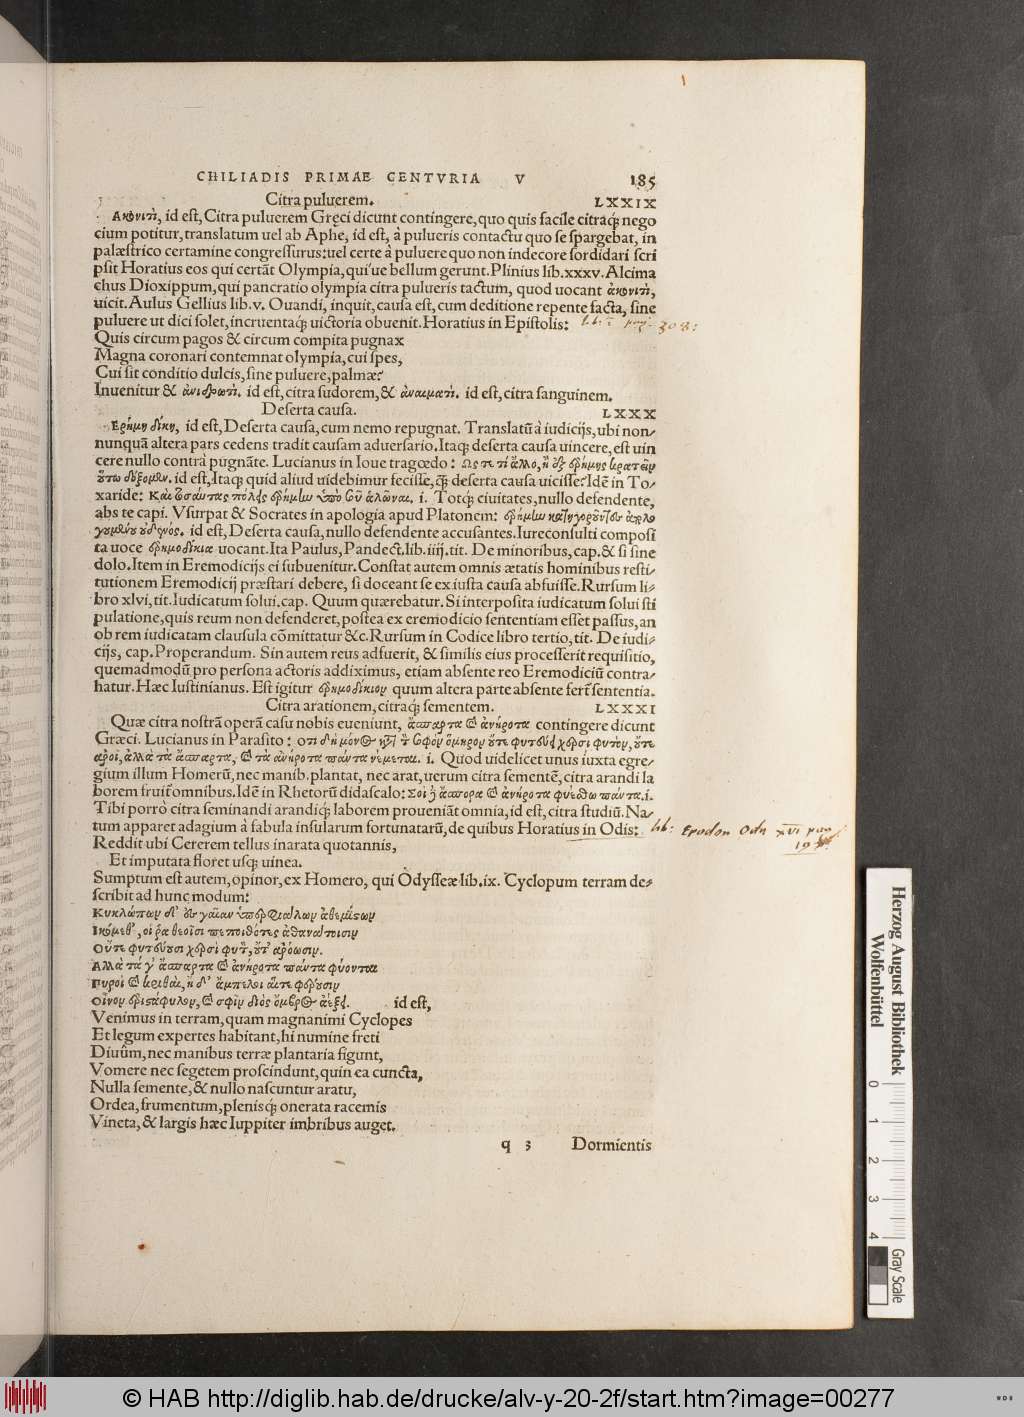 CHILIADIS PRIMAE CENTVRIA V 185
Citra puluerem. LXXIX
Ακονιτὶ, id est, Citra puluerem Gręci dicunt contingere, quo quis facile citraq; nego
cium potitur, translatum uel ab Aphe, id est, à pulueris contactu quo se spargebat, in
palæstrico certamine congressurus: uel certe à puluere quo non indecore sordidari scri
psit Horatius eos qui certãt Olympia, qui'ue bellum gerunt. Plinius lib. xxxv. Alcima
chus Dioxippum, qui pancratio olympia citra pulueris tactum, quod uocant ἀκονιτὶ,
uicit. Aulus Gellius lib. v. Ouandi, inquit, causa est, cum deditione repente facta, sine
puluere ut dici solet, incruentaq; uictoria obuenit. Horatius in Epistolis: lib: i pag. 308:
Quis circum pagos & circum compita pugnax
Magna coronari contemnat olympia, cui spes,
Cui sit conditio dulcis, sine puluere, palmæ?
Inuenitur & ἀνιδρωτὶ. id est, citra sudorem, & ἀναιματὶ. id est, citra sanguinem.
Deserta causa. LXXX
Ερήμη δίκη, id est, Deserta causa, cum nemo repugnat. Translatũ à iudicijs, ubi non-
nunquã altera pars cedens tradit causam aduersario. Itaq; deserta causa uincere, est uin
cere nullo contrà pugnãte. Lucianus in Ioue tragœdo: Ως τε τί ἄλλο, ἢ ἐξ ἐρήμης κρατεῖν
οὕτω δόξομεν. id est, Itaq; quid aliud uidebimur fecisse, q̃; deserta causa uicisse? Idẽ in To-
xaride: Καὶ τοσαύτας πόλεις ἐρήμην ὑπὸ σοῦ ἁλῶναι. i. Totq; ciuitates, nullo defendente,
abs te capi. Vsurpat & Socrates in apologia apud Platonem: ἐρήμην κατηγοροῦντες ἀπολο
γουμένου οὐδενός. id est, Deserta causa, nullo defendente accusantes. Iureconsulti composi
ta uoce ἐρημοδίκια uocant. Ita Paulus, Pandect. lib. iiij. tit. De minoribus, cap. & si sine
dolo. Item in Eremodicijs ei subuenitur. Constat autem omnis ætatis hominibus resti-
tutionem Eremodicij præstari debere, si doceant se ex iusta causa abfuisse. Rursum li-
bro xlvi, tit. Iudicatum solui. cap. Quum quærebatur. Si interposita iudicatum solui sti
pulatione, quis reum non defenderet, postea ex eremodicio sententiam esset passus, an
ob rem iudicatam clausula cõmittatur &c. Rursum in Codice libro tertio, tit. De iudi-
cijs, cap. Properandum. Sin autem reus adfuerit, & similis eius processerit requisitio,
quemadmodũ pro persona actoris addiximus, etiam absente reo Eremodiciũ contra-
hatur. Hæc Iustinianus. Est igitur ἐρημοδίκιον quum altera parte absente fert̃ sententia.
Citra arationem, citraq; sementem. LXXXI
Quæ citra nostrã operã casu nobis eueniunt, ἄσπαρτα καὶ ἀνήροτα contingere dicunt
Græci. Lucianus in Parasito: Οτι δὴ μόνος κατὰ τὸν σοφὸν ὅμηρον οὔτε φυτεύει χερσὶ φυτὸν, οὔτε
ἀροῖ, ἀλλὰ τὰ ἄσπαρτα, καὶ τὰ ἀνήροτα πάντα νέμεται. i. Quod uidelicet unus iuxta egre-
gium illum Homerũ, nec manib. plantat, nec arat, uerum citra sementẽ, citra arandi la
borem fruit̃ omnibus. Idẽ in Rhetorũ didascalo: Σοὶ δὲ ἄσπορα καὶ ἀνήροτα φυέσθω πάντα. i.
Tibi porrò citra seminandi arandiq; laborem proueniãt omnia, id est, citra studiũ. Na-
tum apparet adagium à fabula insularum fortunatarũ, de quibus Horatius in Odis: lib: Epodon Ode xvi pag
Reddit ubi Cererem tellus inarata quotannis,
Et imputata floret usq; uinea.
Sumptum est autem, opinor, ex Homero, qui Odysseæ lib. ix. Cyclopum terram de-
scribit ad hunc modum:
Κυκλώπων δ' ἐς γαῖαν ὑπερφιάλων ἀθεμίστων
Ικόμεθ', οἵ ῥα θεοῖσι πεποιθότες ἀθανάτοισιν
Οὔτε φυτεύουσι χερσὶ φυτὸν, οὔτ' ἀρόωσιν.
Αλλὰ τά γ' ἄσπαρτα καὶ ἀνήροτα πάντα φύονται
Πυροὶ καὶ κριθαὶ, ἠδ' ἄμπελοι αἵτε φέρουσιν
Οἶνον ἐριστάφυλον, καὶ σφὶν διὸς ὄμβρος ἀέξει. id est,
Venimus in terram, quam magnanimi Cyclopes
Et legum expertes habitant, hi numine freti
Diuûm, nec manibus terræ plantaria figunt,
Vomere nec segetem proscindunt, quin ea cuncta,
Nulla semente, & nullo nascuntur aratu,
Ordea, frumentum, plenisq; onerata racemis
Vineta, & largis hæc Iuppiter imbribus auget.
q 3 Dormientis
Herzog August Bibliothek
Wolfenbüttel
0 1 2 3 4
Gray Scale
© HAB http://diglib.hab.de/drucke/alv-y-20-2f/start.htm?image=00277